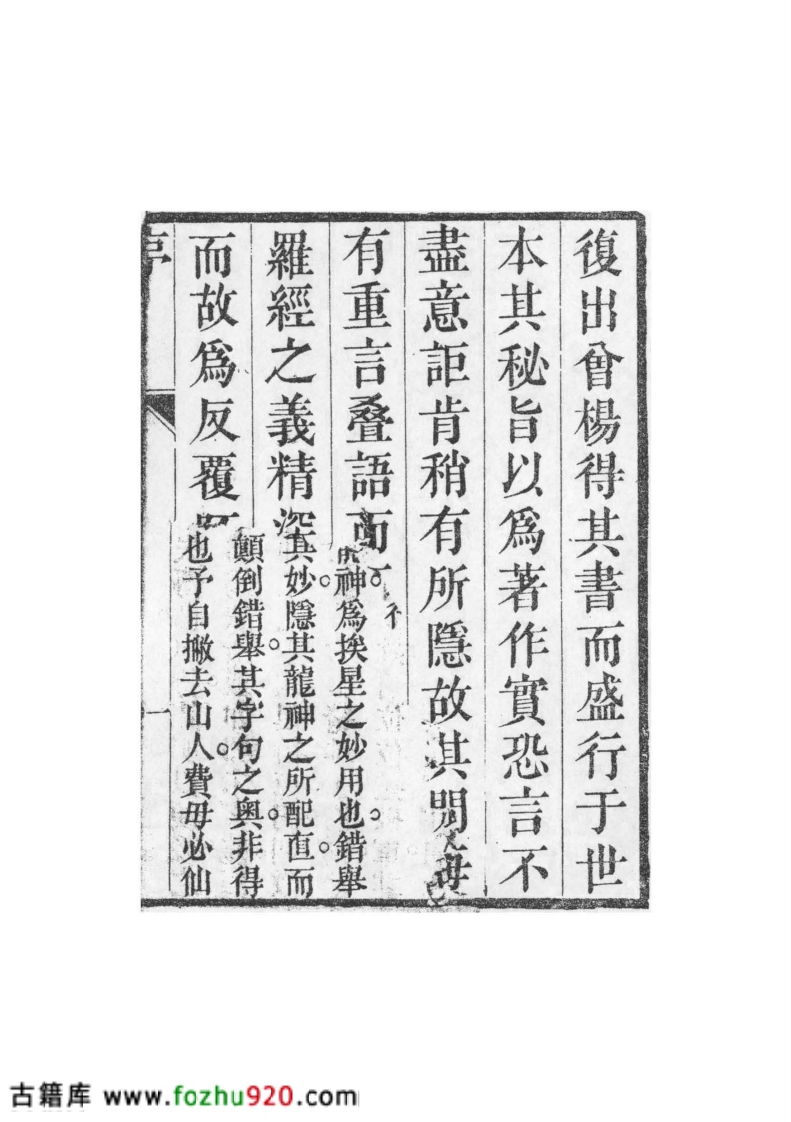 復出曾楊得其書而盛行于世
本其秘旨以爲著作實恐言不
盡意詎肯稍有所隱故其間每
有重言叠語而
羅經之義精深
而故爲反覆
神爲挨星之妙用也錯舉
其妙隱其龍神之所配直而
顛倒錯舉其字句之奧非得
也予自撇去山人費毋必仙
古籍库 www.fozhu920.com